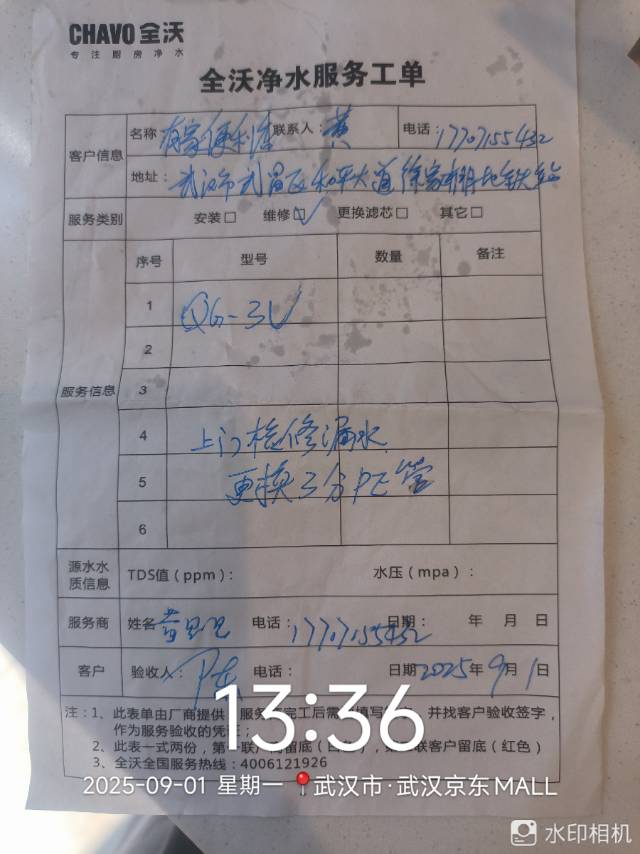 CHAVO 全沃
专注厨房净水
全沃净水服务工单
客户信息 名称 有家便利店 联系人: 黄 电话: 17707155432
地址: 武汉市武昌区和平大道徐家棚地铁站
服务类别 安装□ 维修☑ 更换滤芯□ 其它□
服务信息 序号 型号 数量 备注
1 QG-3U
2
3
4 上门检修漏水
5 更换3分PE管
6
源水水质信息 TDS值(ppm): 水压(mpa):
服务商 姓名 电话: 17707155432 日期: 年 月 日
客户 验收人: 电话: 日期 2025年9月1日
注:1、此表单由厂商提供 服务 完工后需 填写 并找客户验收签字,
作为服务验收的凭证;
2、此表一式两份,第一联 留底(白 联客户留底(红色)
3、全沃全国服务热线:4006121926
13:36
2025-09-01 星期一 武汉市·武汉京东MALL
水印相机